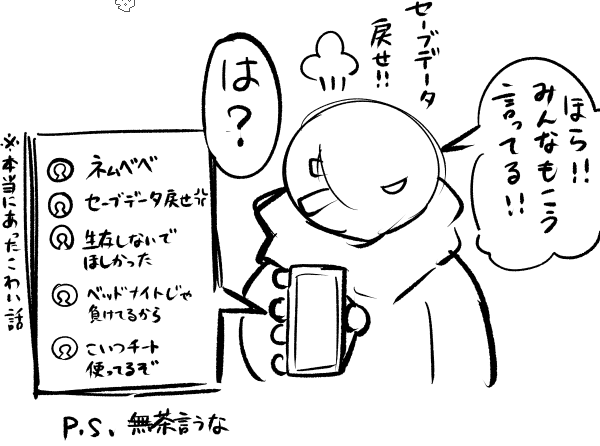 セーブデータ
戻せ!!
ほら!!
みんなもこう
言ってる!!
は?
※本当にあったこわい話
ネムベベ
セーブデータ戻せ
生存しないで
ほしかった
ベッドナイトじゃ
負けてるから
こいつチート
使ってるぞ
P.S. 無茶言うな